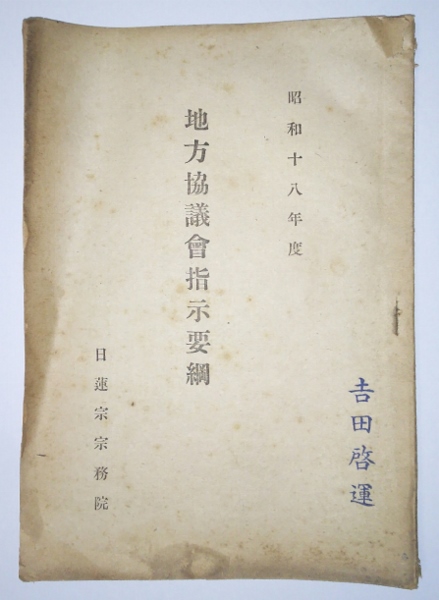 昭和十八年度
地方協議會指示要綱
日蓮宗宗務院
𠮷田啓運